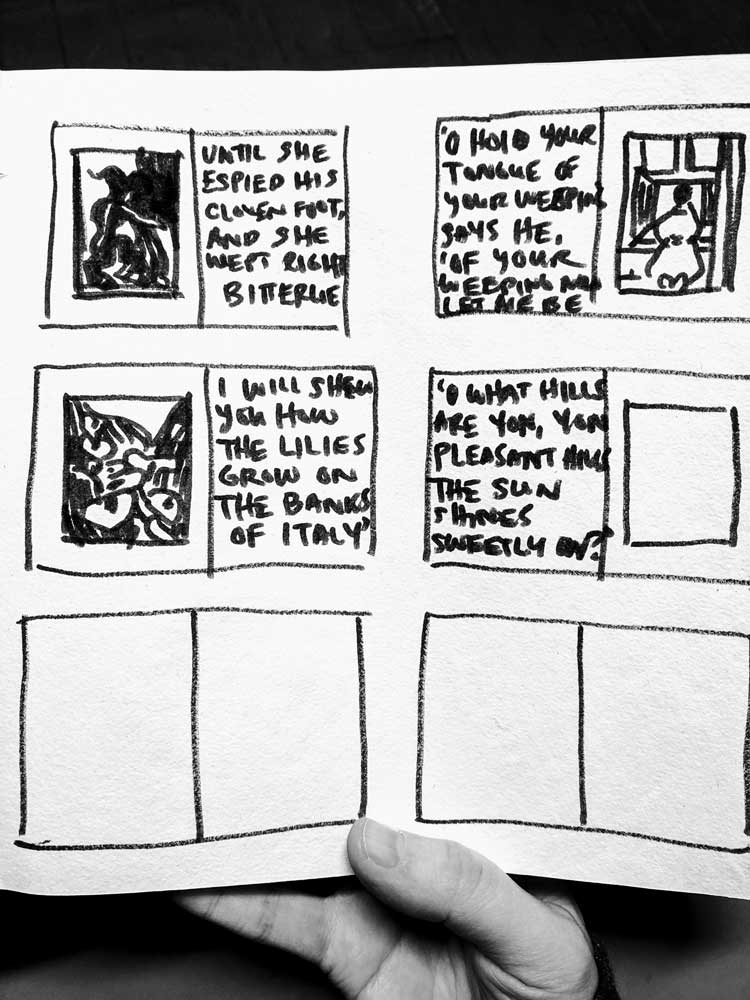 UNTIL SHE
ESPIED HIS
CLOVEN FOOT,
AND SHE
WEPT RIGHT
BITTERLIE
'O HOLD YOUR
TONGUE OF
YOUR WEEPIN
SAYS HE,
'OF YOUR
WEEPING NOW
LET ME BE
I WILL SHEW
YOU HOW
THE LILIES
GROW ON
THE BANKS
OF ITALY'
'O WHAT HILLS
ARE YON, YON
PLEASANT HILLS
THE SUN
SHINES
SWEETLY ON?'